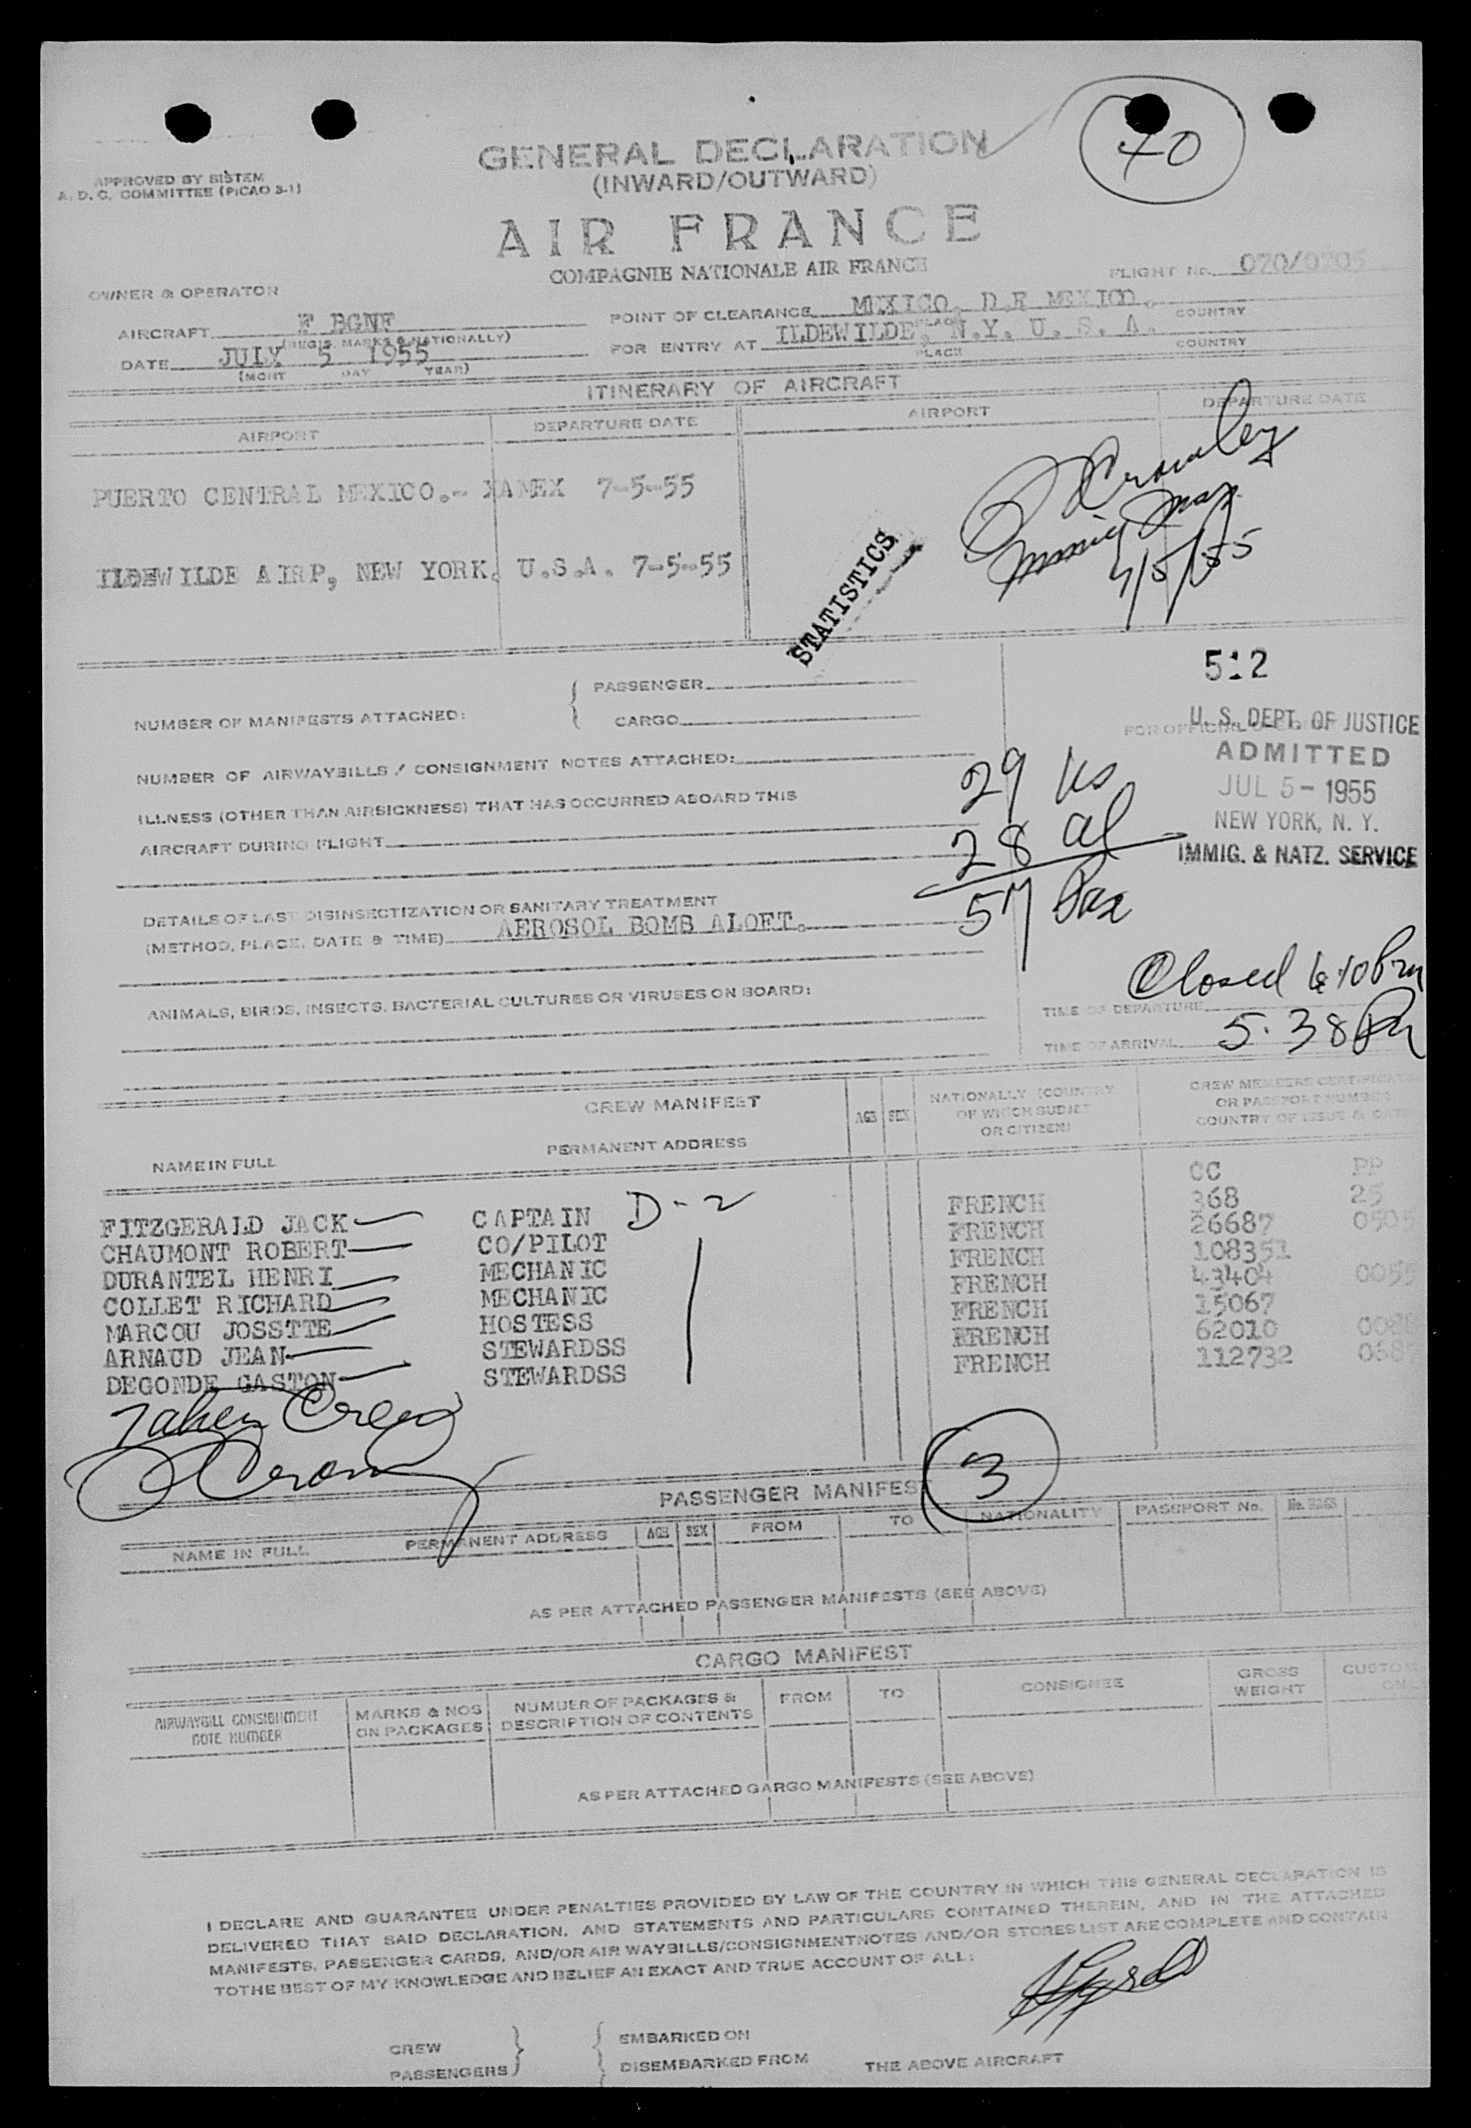 40
GENERAL DECLARATION
(INWARD/OUTWARD)
APPROVED BY SISTEM
A. D. C. COMMITTEE (PICAO 3-1)
AIR FRANCE
COMPAGNIE NATIONALE AIR FRANCE
FLIGHT No. 070/0705
OWNER & OPERATOR
AIRCRAFT F BGNF
(REGIS. MARKS & NATIONALLY)
DATE JULY 5 1955
(MONT DAY YEAR)
POINT OF CLEARANCE MEXICO, D.F MEXICO.
PLACE COUNTRY
FOR ENTRY AT ILDEWILDE, N.Y. U. S. A.
PLACE COUNTRY
ITINERARY OF AIRCRAFT
AIRPORT DEPARTURE DATE AIRPORT DEPARTURE DATE
PUERTO CENTRAL MEXICO.- XAMEX 7-5-55
ILDEWILDE AIRP, NEW YORK. U.S.A. 7-5-55
STATISTICS
7/5/55
512
NUMBER OF MANIFESTS ATTACHED:
PASSENGER
CARGO
U. S. DEPT. OF JUSTICE
ADMITTED
JUL 5 - 1955
NEW YORK, N. Y.
IMMIG. & NATZ. SERVICE
NUMBER OF AIRWAYBILLS / CONSIGNMENT NOTES ATTACHED:
ILLNESS (OTHER THAN AIRSICKNESS) THAT HAS OCCURRED ABOARD THIS
AIRCRAFT DURING FLIGHT
29 us
28 al
57 Pax
DETAILS OF LAST DISINSECTIZATION OR SANITARY TREATMENT
(METHOD, PLACE, DATE & TIME) AEROSOL BOMB ALOFT.
ANIMALS, BIRDS, INSECTS, BACTERIAL CULTURES OR VIRUSES ON BOARD:
Closed 6:10 Pm
TIME OF DEPARTURE
TIME OF ARRIVAL 5.38 Pm
CREW MANIFEST
NAME IN FULL PERMANENT ADDRESS AGE SEX
NATIONALLY (COUNTRY
OF WHICH SUBJET
OR CITIZEN)
CREW MEMBERS CERTIFICATE
OR PASSPORT NUMBER
COUNTRY OF ISSUE & DATE
CC PP
FITZGERALD JACK CAPTAIN D-2 FRENCH 368 25
CHAUMONT ROBERT CO/PILOT FRENCH 26687 0505
DURANTEL HENRI MECHANIC FRENCH 108351
COLLET RICHARD MECHANIC FRENCH 43404 0055
MARCOU JOSSTTE HOSTESS FRENCH 15067
ARNAUD JEAN STEWARDSS FRENCH 62010
DEGONDE GASTON STEWARDSS FRENCH 112732
3
PASSENGER MANIFES
NAME IN FULL PERMANENT ADDRESS AGE SEX FROM TO NATIONALITY PASSPORT No. No. BAGS
AS PER ATTACHED PASSENGER MANIFESTS (SEE ABOVE)
CARGO MANIFEST
AIRWAYBILL CONSIGNMENT
NOTE NUMBER
MARKS & NOS
ON PACKAGES
NUMBER OF PACKAGES &
DESCRIPTION OF CONTENTS
FROM TO CONSIGNEE
GROSS
WEIGHT
CUSTOM
AS PER ATTACHED CARGO MANIFESTS (SEE ABOVE)
I DECLARE AND GUARANTEE UNDER PENALTIES PROVIDED BY LAW OF THE COUNTRY IN WHICH THIS GENERAL DECLARATION IS
DELIVERED THAT SAID DECLARATION, AND STATEMENTS AND PARTICULARS CONTAINED THEREIN, AND IN THE ATTACHED
MANIFESTS, PASSENGER CARDS, AND/OR AIR WAYBILLS/CONSIGNMENTNOTES AND/OR STORES LIST ARE COMPLETE AND CONTAIN
TOTHE BEST OF MY KNOWLEDGE AND BELIEF AN EXACT AND TRUE ACCOUNT OF ALL:
CREW
PASSENGERS
EMBARKED ON
DISEMBARKED FROM
THE ABOVE AIRCRAFT